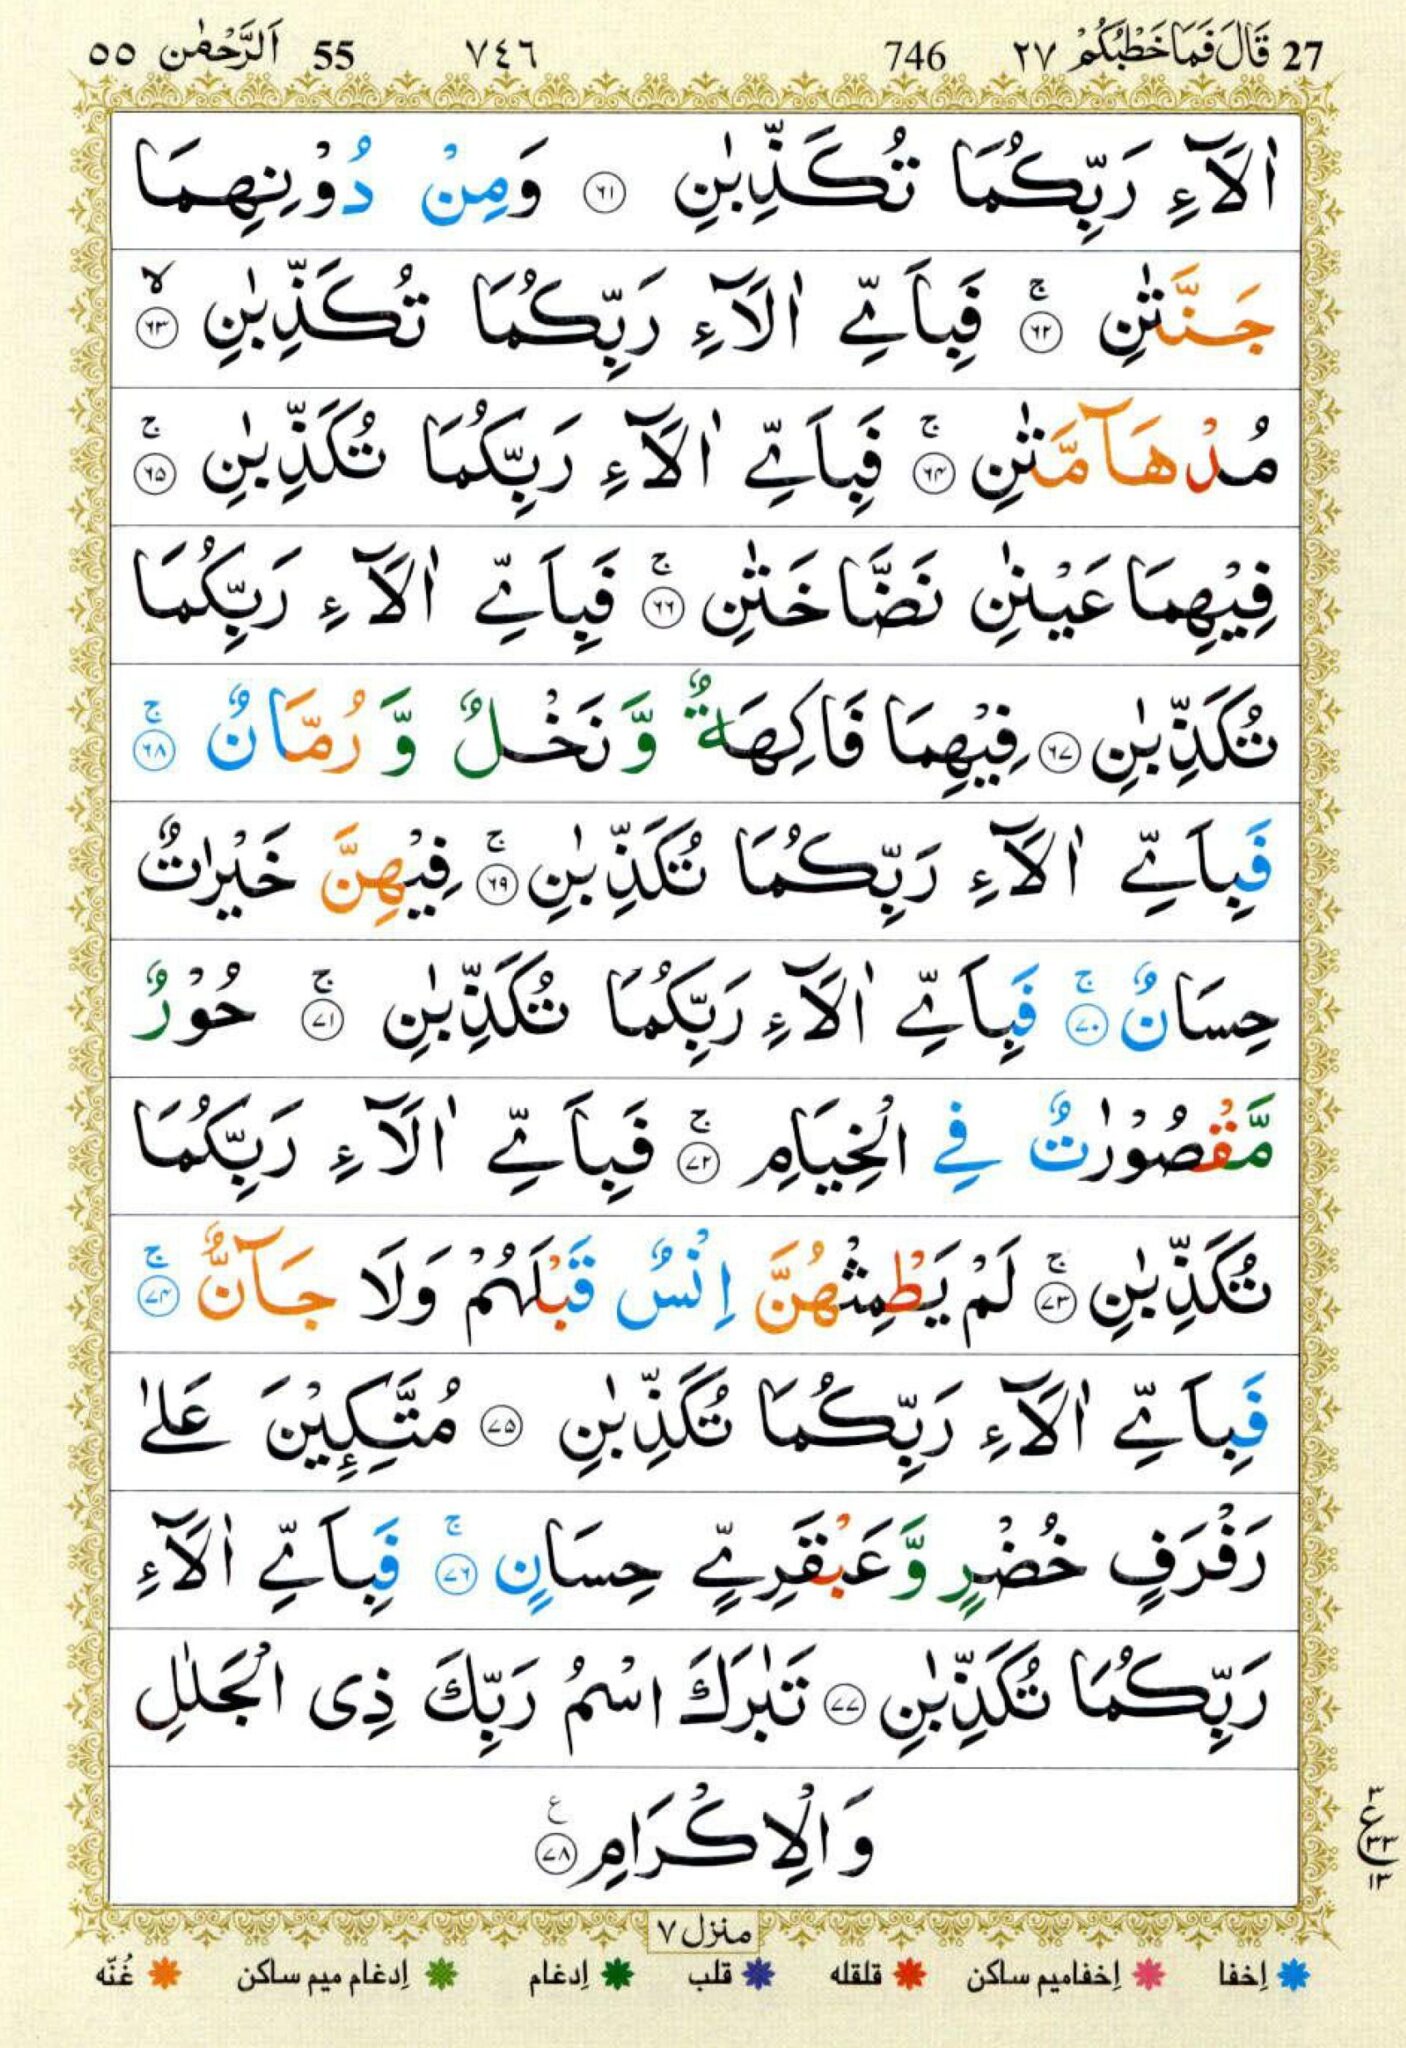 27 قَالَ فَمَا خَطْبُكُمْ ٢٧ 746 ٧٤٦ 55 اَلرَّحْمٰن ٥٥
اٰلَآءِ رَبِّكُمَا تُكَذِّبٰنِ ۝۶۱ وَمِنْ دُوْنِهِمَا
جَنَّتٰنِ ۝۶۲ۚ فَبِاَيِّ اٰلَآءِ رَبِّكُمَا تُكَذِّبٰنِ ۝۶۳ۙ
مُدْهَآمَّتٰنِ ۝۶۴ۚ فَبِاَيِّ اٰلَآءِ رَبِّكُمَا تُكَذِّبٰنِ ۝۶۵ۚ
فِيْهِمَا عَيْنٰنِ نَضَّاخَتٰنِ ۝۶۶ۚ فَبِاَيِّ اٰلَآءِ رَبِّكُمَا
تُكَذِّبٰنِ ۝۶۷ فِيْهِمَا فَاكِهَةٌ وَّنَخْلٌ وَّرُمَّانٌ ۝۶۸ۚ
فَبِاَيِّ اٰلَآءِ رَبِّكُمَا تُكَذِّبٰنِ ۝۶۹ۚ فِيْهِنَّ خَيْرٰتٌ
حِسَانٌ ۝۷۰ۚ فَبِاَيِّ اٰلَآءِ رَبِّكُمَا تُكَذِّبٰنِ ۝۷۱ۚ حُوْرٌ
مَّقْصُوْرٰتٌ فِي الْخِيَامِ ۝۷۲ۚ فَبِاَيِّ اٰلَآءِ رَبِّكُمَا
تُكَذِّبٰنِ ۝۷۳ۚ لَمْ يَطْمِثْهُنَّ اِنْسٌ قَبْلَهُمْ وَلَا جَآنٌّ ۝۷۴ۚ
فَبِاَيِّ اٰلَآءِ رَبِّكُمَا تُكَذِّبٰنِ ۝۷۵ مُتَّكِـِٕيْنَ عَلٰى
رَفْرَفٍ خُضْرٍ وَّعَبْقَرِيٍّ حِسَانٍ ۝۷۶ۚ فَبِاَيِّ اٰلَآءِ
رَبِّكُمَا تُكَذِّبٰنِ ۝۷۷ تَبٰرَكَ اسْمُ رَبِّكَ ذِى الْجَلٰلِ
وَالْاِكْرَامِ ۝۷۸ ع
٣ ع ٣٣ ١٣
منزل ٧
اِخفا اِخفامیم ساکن قلقله قلب اِدغام اِدغام میم ساکن غُنّه